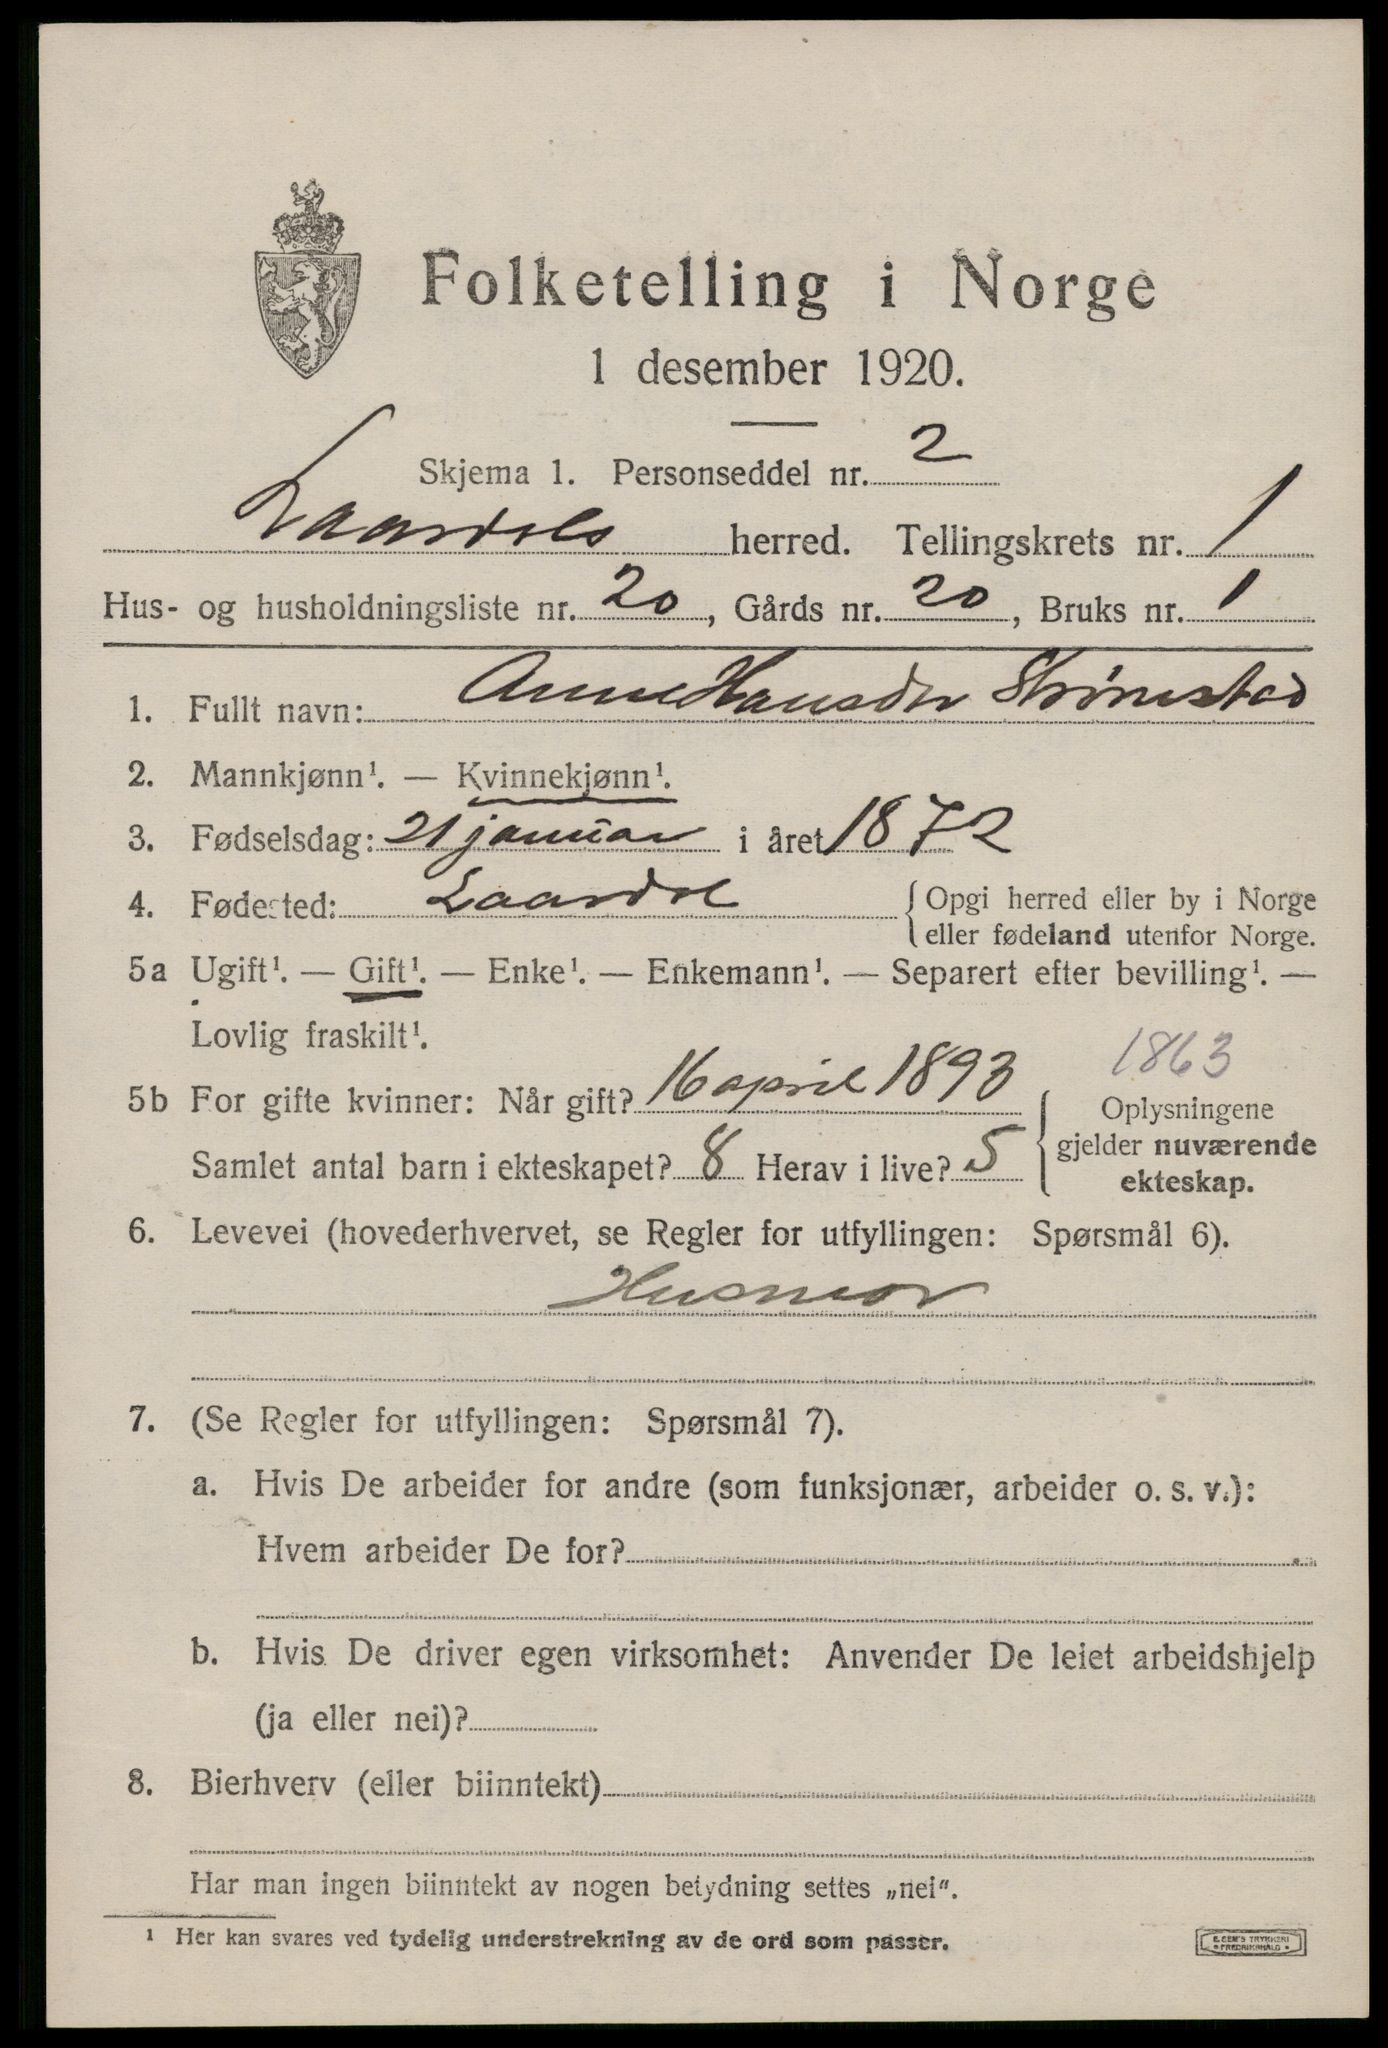 Folketelling i Norge
1 desember 1920.
Skjema 1. Personseddel nr. 2
Laardals herred. Tellingskrets nr. 1
Hus- og husholdningsliste nr. 20, Gårds nr. 20, Bruks nr. 1
1. Fullt navn: Anne Hansdtr Strømstad
2. Mannkjønn¹. — Kvinnekjønn¹.
3. Fødselsdag: 21 januar i året 1872
4. Fødested: Laardal {Opgi herred eller by i Norge
eller fødeland utenfor Norge.
5a Ugift¹. — Gift¹. — Enke¹. — Enkemann¹. — Separert efter bevilling¹. —
Lovlig fraskilt¹.
1863
5b For gifte kvinner: Når gift? 16 april 1893
Samlet antal barn i ekteskapet? 8 Herav i live? 5
Oplysningene
gjelder nuværende
ekteskap.
6. Levevei (hovederhvervet, se Regler for utfyllingen: Spørsmål 6).
Husmor
7. (Se Regler for utfyllingen: Spørsmål 7).
a. Hvis De arbeider for andre (som funksjonær, arbeider o. s. v.):
Hvem arbeider De for?
b. Hvis De driver egen virksomhet: Anvender De leiet arbeidshjelp
(ja eller nei)?
8. Bierhverv (eller biinntekt)
Har man ingen biinntekt av nogen betydning settes „nei“.
¹ Her kan svares ved tydelig understrekning av de ord som passer.
E. SEM'S TRYKKERI
FREDRIKSHALD